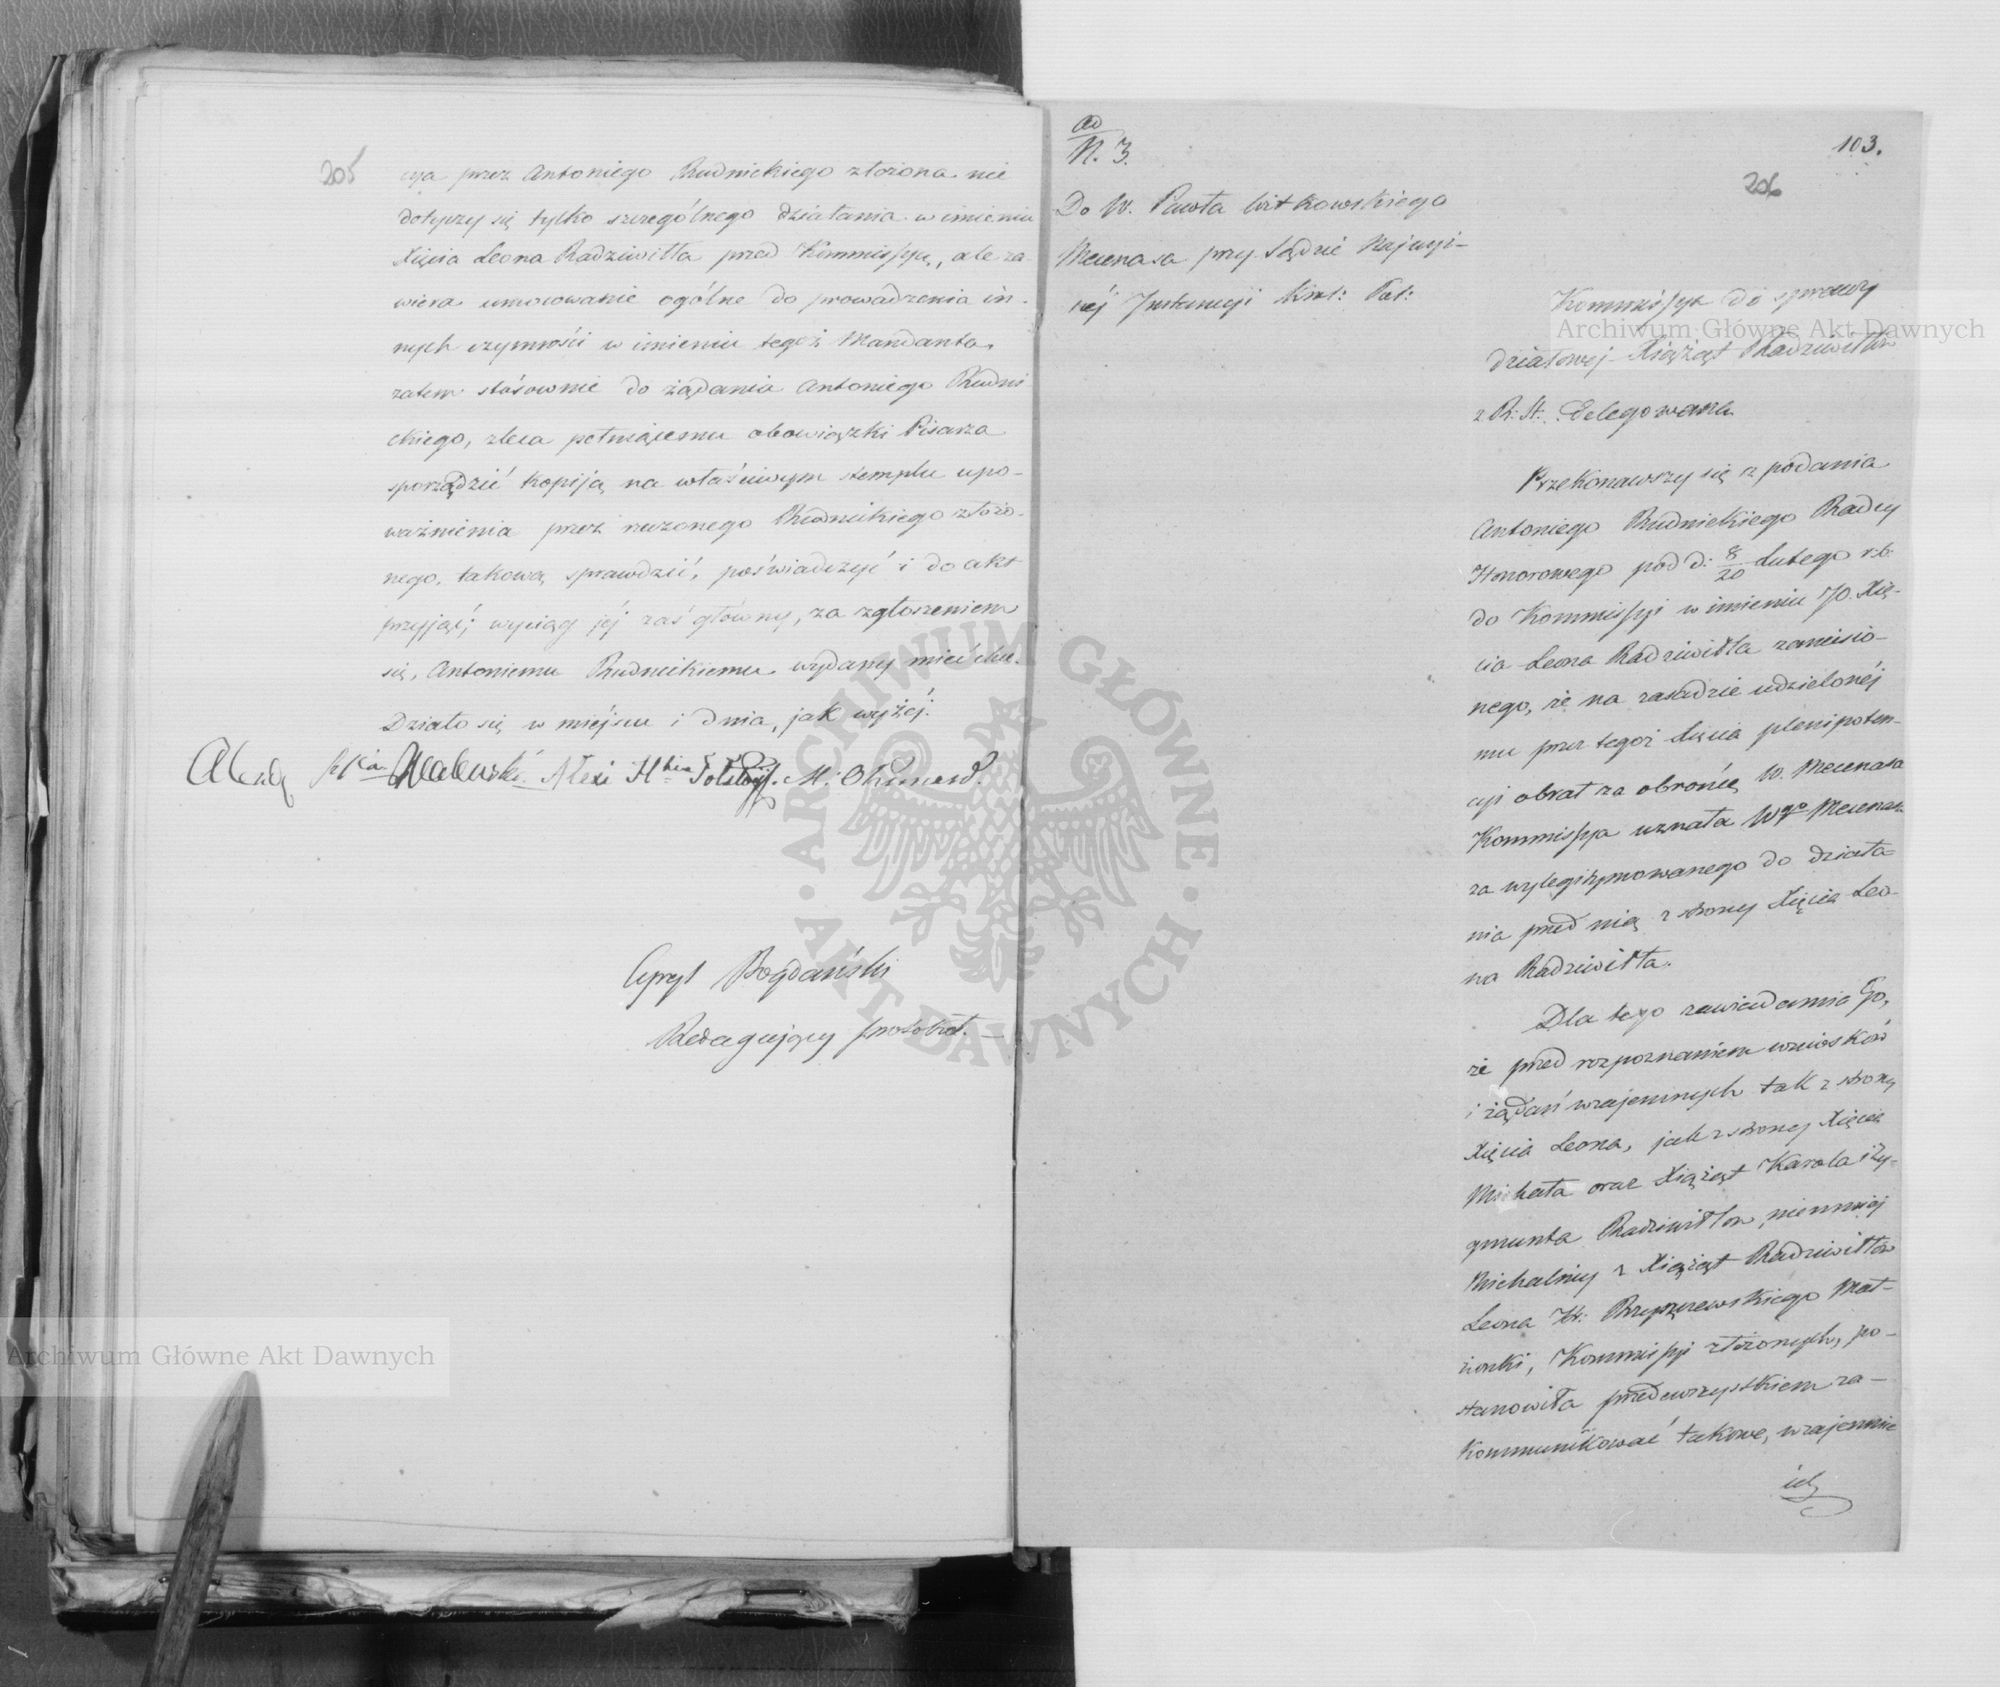 205
cya przez Antoniego Rudnickiego złożona nie
dotyczy się tylko szczególnego działania w imieniu
Xięcia Leona Radziwiłła przed Kommissyą, ale za-
wiera umocowanie ogólne do prowadzenia in-
nych czynności w imieniu tegoż Mandanta,
zatem stósownie do żądania Antoniego Rudni
ckiego, zleca pełniącemu obowiązki Pisarza
sporządzić kopiją na właściwym stemplu upo-
ważnienia przez rzeczonego Rudnickiego złożo-
nego, takową sprawdzić, poświadczyć i do akt
przyjąć; wyciąg jéj zaś główny, za zgłoszeniem
się, Antoniemu Rudnickiemu wydany mieć chce.
Działo się w miejscu i dnia, jak wyżéj.
Alexa Hbia Walewski Alexi Hbia Potocki M: Okunew.
Cypryl Bogdański
Redagujący protokół.
ad
N. 3.
103.
206
Do W. Pawła Witkowskiego
Mecenasa przy Sądzie Najwyż-
széj Instancyi Król: Pol:
Kommissya do sprawy
działowej Xiążąt Radziwiłłów
z R: St: delegowana
Przekonawszy się z podania
Antoniego Rudnickiego Radcy
Honorowego pod d: 8/20 Lutego r.b.
do Kommissyi w imieniu JO. Xię-
cia Leona Radziwiłła zaniesio-
nego, że na zasadzie udzielonéj
mu przez tegoż Xięcia plenipoten-
cyi obrał za obrońcę W. Mecenasa
Kommissya uznała Wgo Mecenasa
za wylegitymowanego do działa-
nia przed nią z strony Xięcia Leo-
na Radziwiłła.
Dla tego zawiadamia Go,
że przed rozpoznaniem wniosków
i żądań wzajemnych tak z strony
Xięcia Leona, jak z strony Xięcia
Michała oraz Xiążąt Karola i Zy-
gmunta Radziwiłłów niemniej
Michaliny z Xiążąt Radziwiłłów
Leona Hr: Rzyszczewskiego Mał-
żonki, Kommissyi złożonych, po-
stanowiła przedewszystkiem za-
kommunikować takowe, wzajemnie
ich
Archiwum Główne Akt Dawnych
Archiwum Główne Akt Dawnych
ARCHIWUM GŁÓWNE AKT DAWNYCH